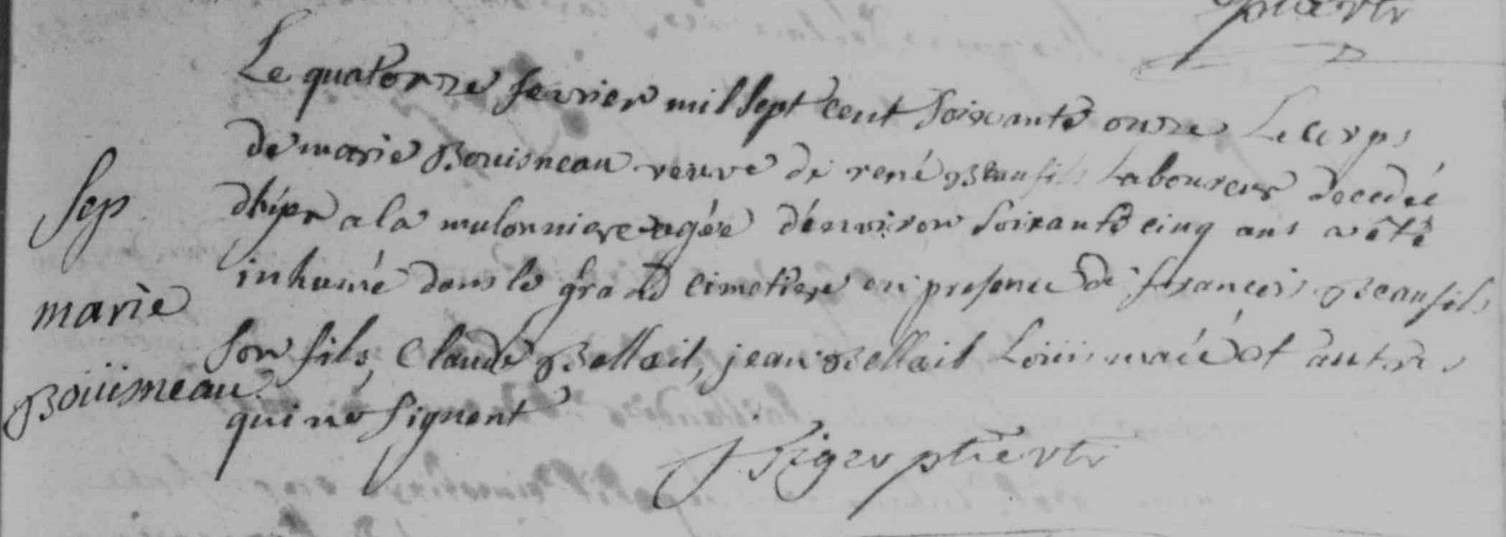 Le quatorze fevrier mil sept cent soixante onze Le corps
de marie Bouisneau veuve de rené Beaufils Laboureur decedée
d'hier a la mulonniere agée d'environ soixante cinq ans a été
inhumé dans le grand cimetiere en presence de francois Beaufils
son fils, Claude Bellœil, jean Bellœil Loüis et autres
qui ne signent
Sep
marie
Boüisneau
ptre vic